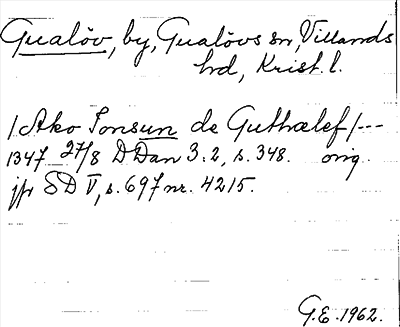 Gualöv, by, Gualövs sn, Villands
hd, Krist. l.
/Ako Jonsun de Guthælef/---
1347 27/8 DDan 3:2, s. 348. orig.
jfr SD V, s. 697 nr. 4215.
G.E. 1962.